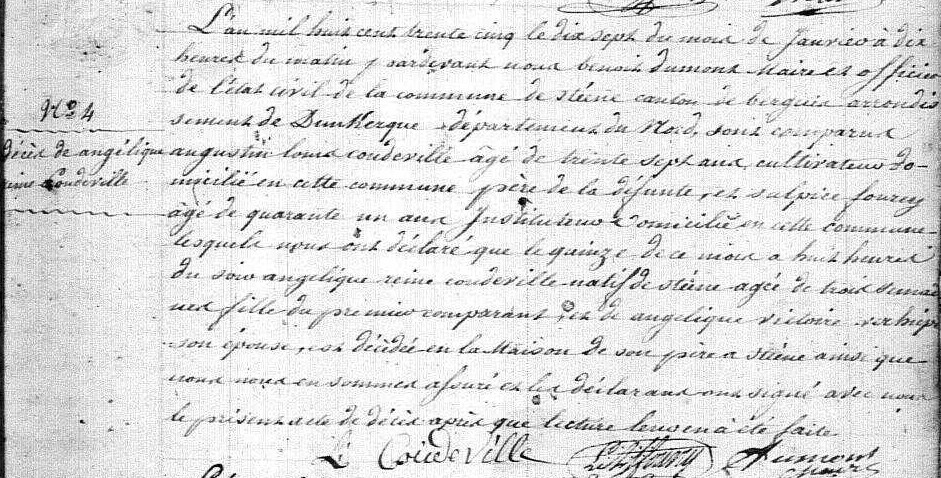 L'an mil huit cent trente cinq le dix sept du mois de Janvier à dix
heures du matin pardevant nous benoit Dumont Maire et officier
de l'état civil de la commune de stéene canton de bergues arrondis
N° 4
sement de Dunkerque département du Nord, sont comparus
décès de angélique
reine Coudeville
augustin louis coudeville âgé de trente sept ans, cultivateur do-
micilié en cette commune père de la défunte, et sulpice fourcy
âgé de quarante un ans Instituteur Domicilié en cette commune
lesquels nous ont déclaré que le quinze de ce mois a huit heures
du soir angélique reine coudeville natif de stéene agée de trois semai
nes fille du premier comparant, et de angélique victoire
son épouse, est décédée en la Maison de son père a stéene ainsi que
nous nous en sommes assuré et les déclarans ont signé avec nous
le présent acte de décès après que lecture leur en a été faite
L Coudeville Dumont